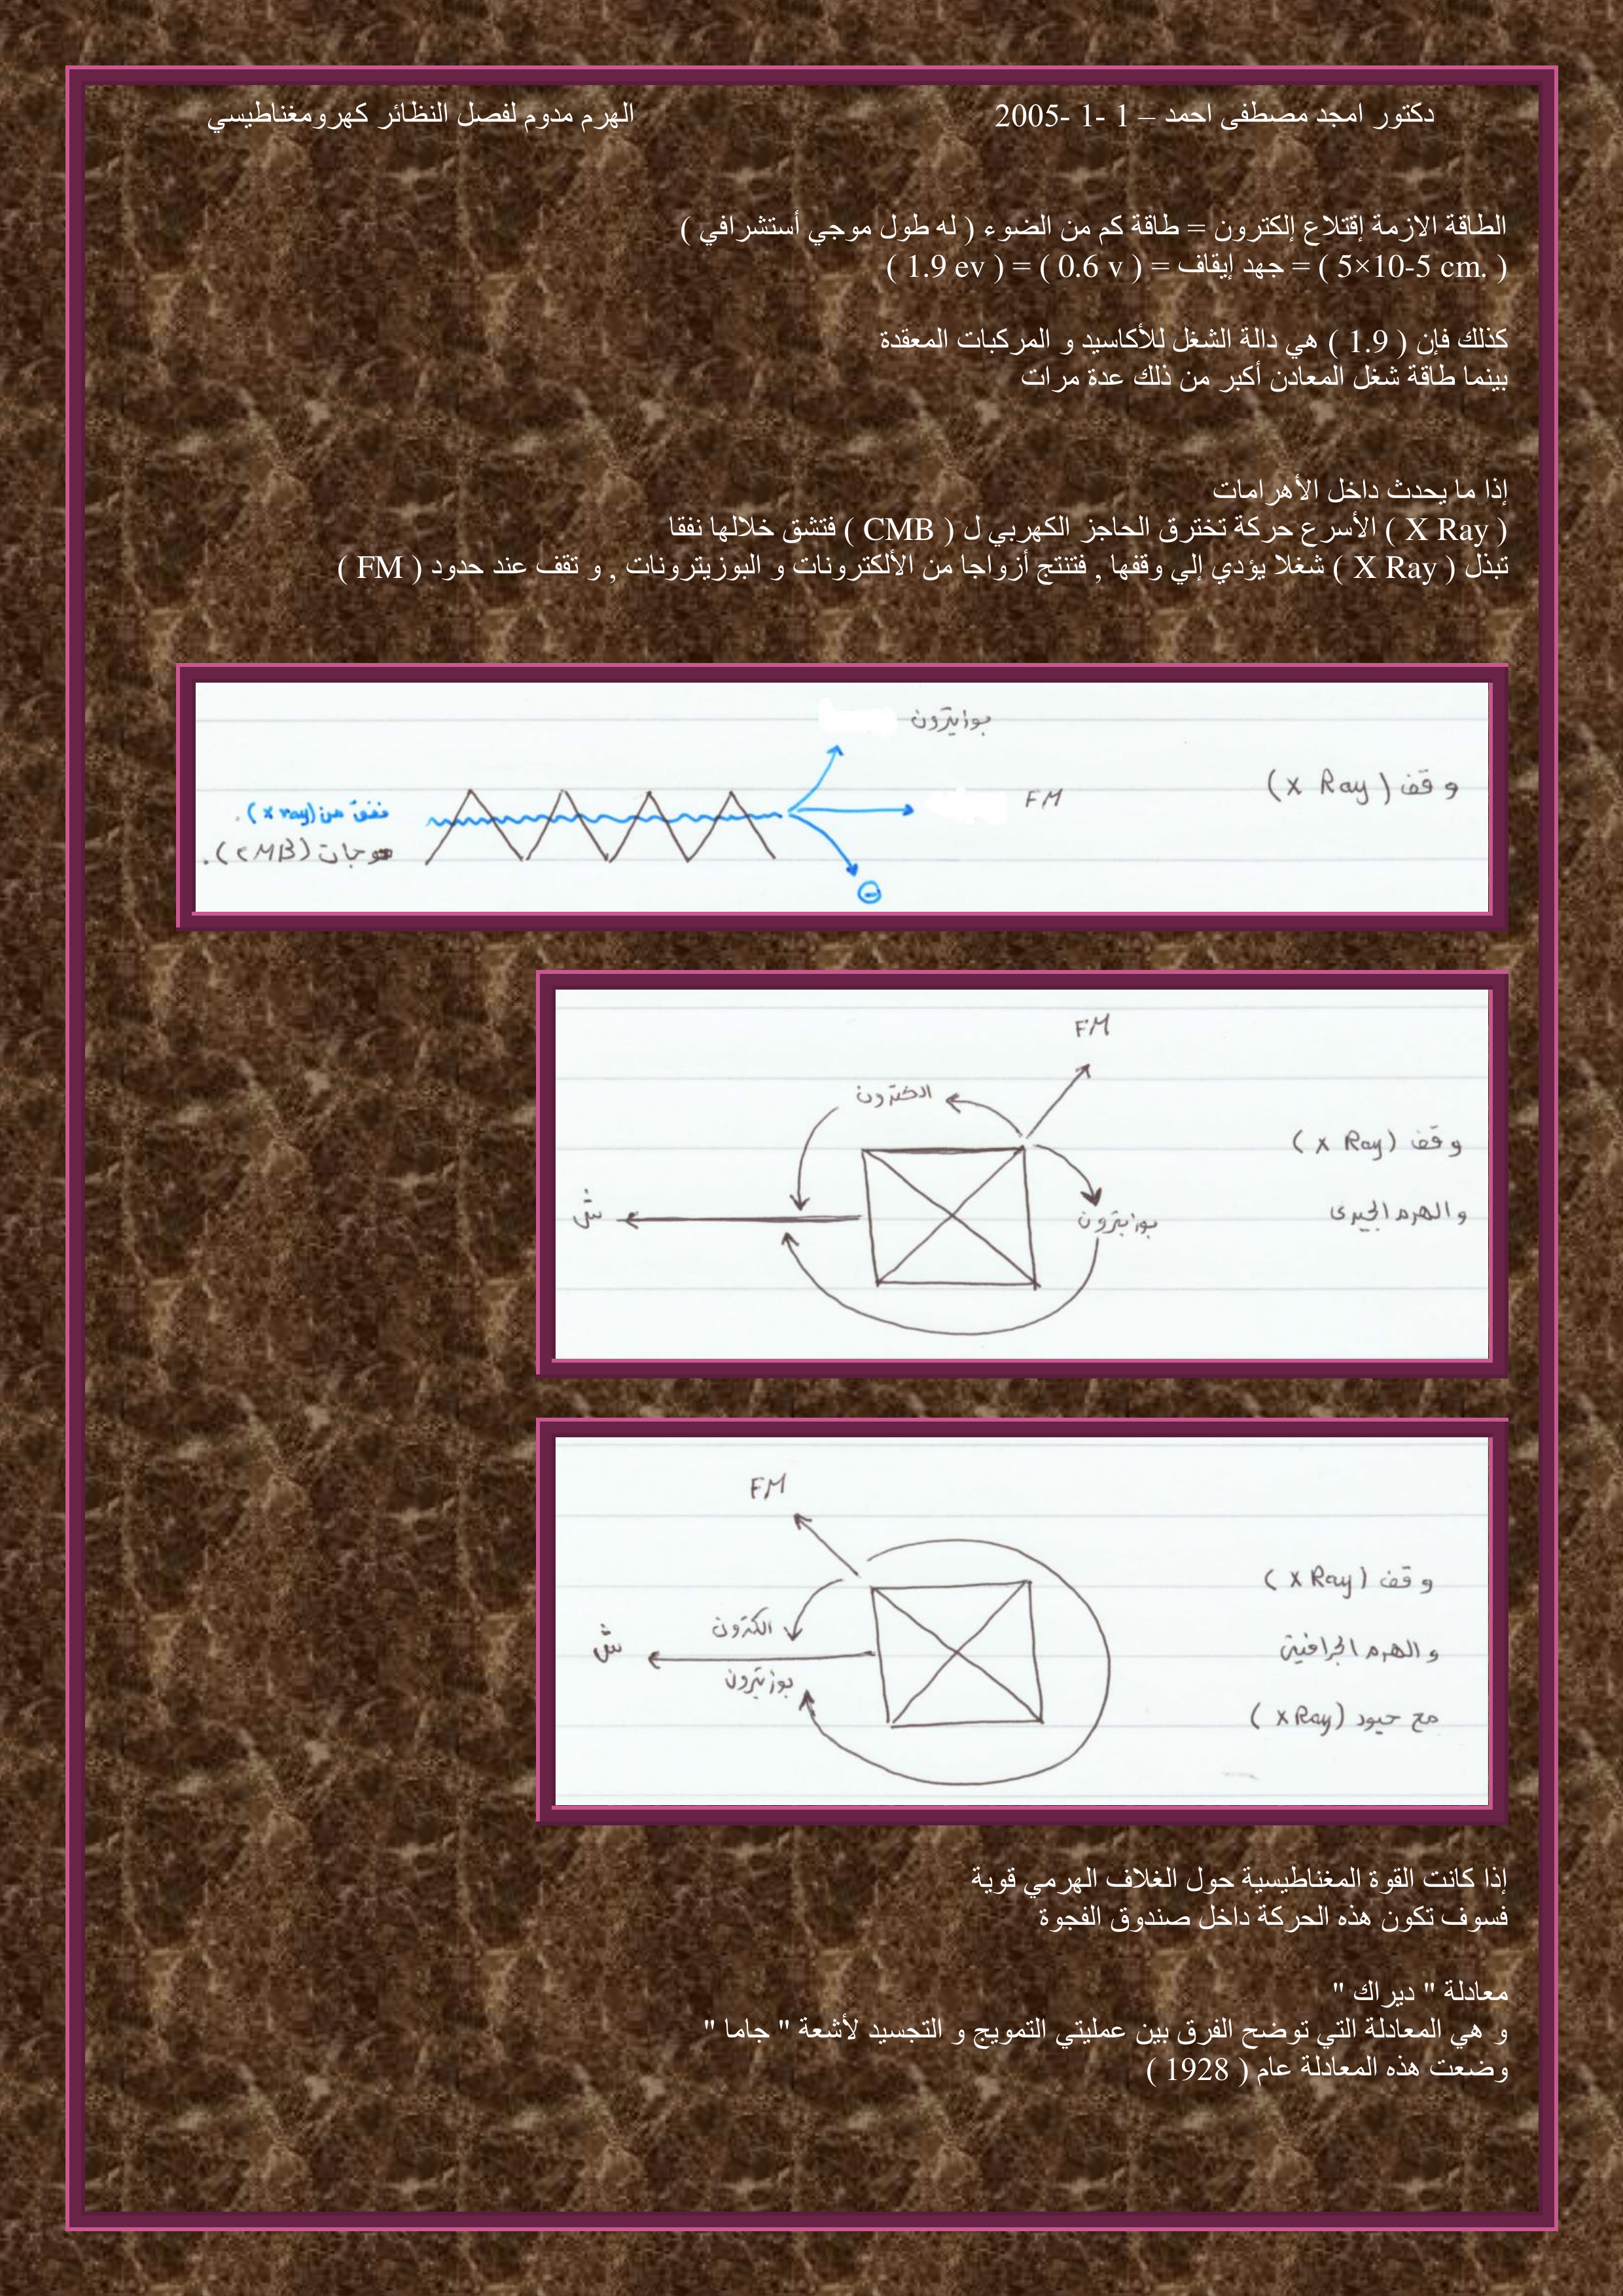 دكتور امجد مصطفى احمد – 1 -1 -2005 الهرم مدوم لفصل النظائر كهرومغناطيسي
الطاقة الازمة إقتلاع إلكترون = طاقة كم من الضوء ( له طول موجي أستشرافي )
( 5×10-5 cm. ) = جهد إيقاف = ( 0.6 v ) = ( 1.9 ev )
كذلك فإن ( 1.9 ) هي دالة الشغل للأكاسيد و المركبات المعقدة
بينما طاقة شغل المعادن أكبر من ذلك عدة مرات
إذا ما يحدث داخل الأهرامات
( X Ray ) الأسرع حركة تخترق الحاجز الكهربي ل ( CMB ) فتشق خلالها نفقا
تبذل ( X Ray ) شغلا يؤدي إلي وقفها , فتنتج أزواجا من الألكترونات و البوزيترونات , و تقف عند حدود ( FM )
بوزيترون
وقف (x Ray)
FM
نفق من (x ray).
موجات (CMB).
FM
الكترون
وقف (x Ray)
بوزيترون
ش
و الهرم الجيرى
FM
وقف (x Ray)
الكترون
ش
و الهرم الجرافيتى
بوزيترون
مع حيود (x Ray)
إذا كانت القوة المغناطيسية حول الغلاف الهرمي قوية
فسوف تكون هذه الحركة داخل صندوق الفجوة
معادلة " ديراك "
و هي المعادلة التي توضح الفرق بين عمليتي التمويج و التجسيد لأشعة " جاما "
وضعت هذه المعادلة عام ( 1928 )